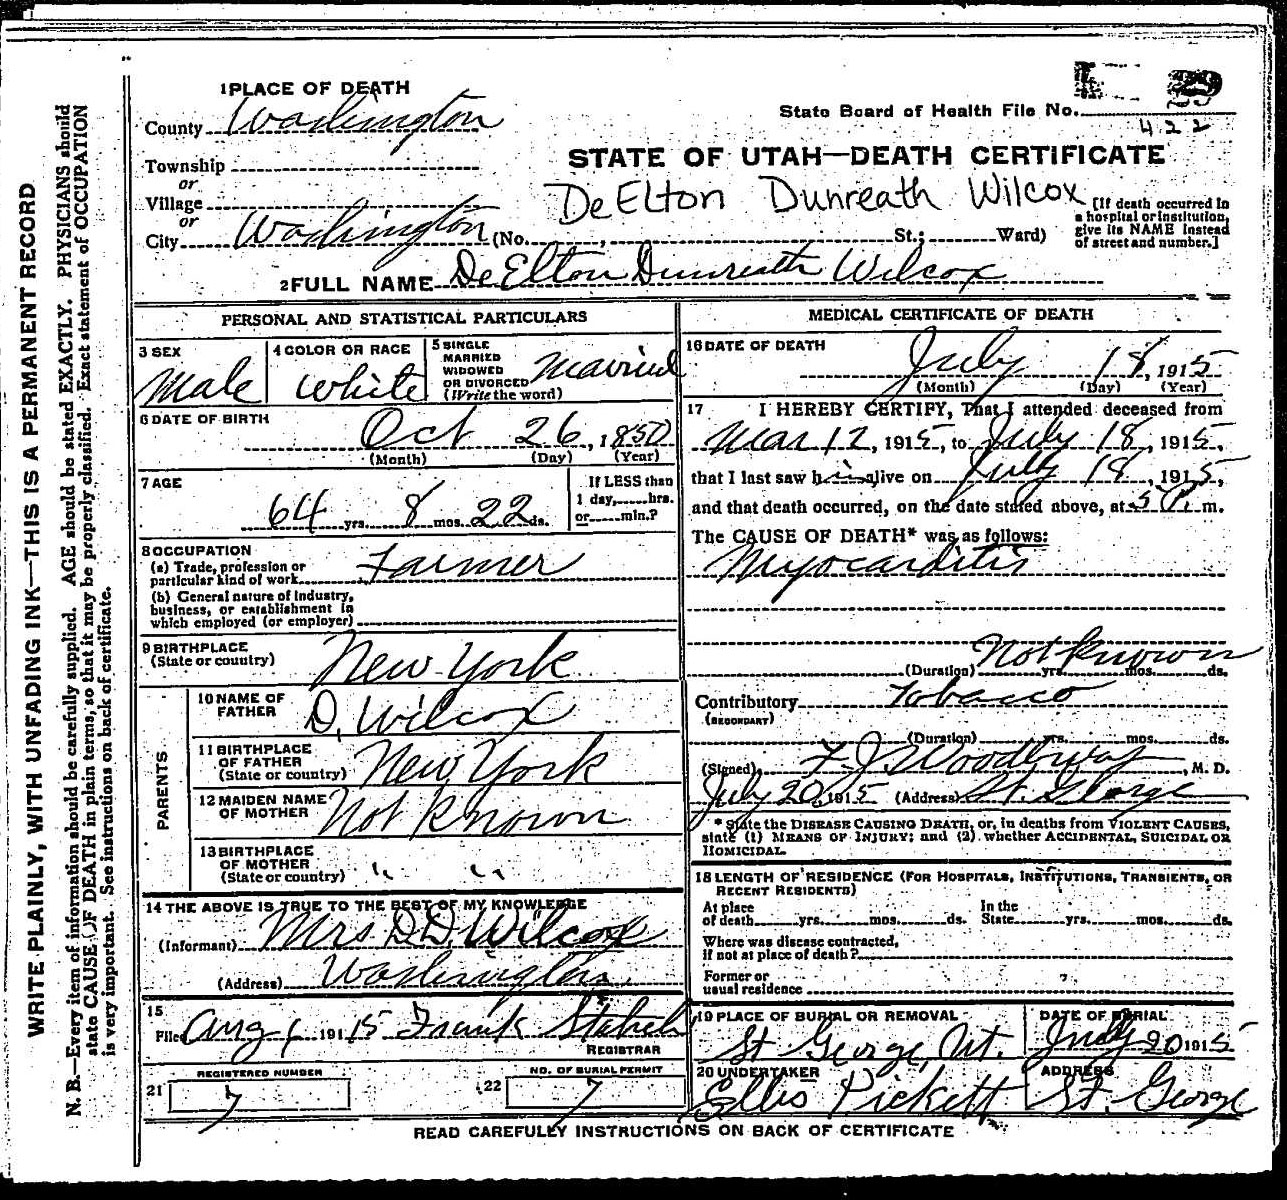 1 PLACE OF DEATH
County Washington
State Board of Health File No.
422
Township
or
Village
or
City Washington (No. , St.; Ward)
STATE OF UTAH—DEATH CERTIFICATE
DeElton Dunreath Wilcox
[If death occurred in
a hospital or institution,
give its NAME instead
of street and number.]
2 FULL NAME DeElton Dunreath Wilcox
PERSONAL AND STATISTICAL PARTICULARS
3 SEX
Male
4 COLOR OR RACE
White
5 SINGLE
MARRIED
WIDOWED
OR DIVORCED
(Write the word)
Married
6 DATE OF BIRTH
Oct 26, 1850
(Month) (Day) (Year)
7 AGE
64 yrs. 8 mos. 22 ds.
If LESS than
1 day,......hrs.
or......min.?
8 OCCUPATION
(a) Trade, profession or
particular kind of work Farmer
(b) General nature of industry,
business, or establishment in
which employed (or employer)
9 BIRTHPLACE
(State or country) New York
PARENTS
10 NAME OF
FATHER D. Wilcox
11 BIRTHPLACE
OF FATHER
(State or country) New York
12 MAIDEN NAME
OF MOTHER Not Known
13 BIRTHPLACE
OF MOTHER
(State or country) " "
14 THE ABOVE IS TRUE TO THE BEST OF MY KNOWLEDGE
(Informant) Mrs D.D. Wilcox
(Address) Washington
15
Filed Aug 6 191 15 Frank
REGISTRAR
REGISTERED NUMBER
21 7
NO. OF BURIAL PERMIT
22 7
MEDICAL CERTIFICATE OF DEATH
16 DATE OF DEATH
July 18, 1915
(Month) (Day) (Year)
17 I HEREBY CERTIFY, That I attended deceased from
Mar 12, 1915, to July 18, 1915,
that I last saw him alive on July 18, 1915,
and that death occurred, on the date stated above, at 5 P. m.
The CAUSE OF DEATH* was as follows:
Myocarditis
Not Known
(Duration) yrs. mos. ds.
Contributory Tobacco
(SECONDARY)
(Duration) yrs. mos. ds.
(Signed) F. J. Woodbury, M. D.
July 20, 1915 (Address) St. George
* State the DISEASE CAUSING DEATH, or, in deaths from VIOLENT CAUSES,
state (1) MEANS OF INJURY; and (2) whether ACCIDENTAL, SUICIDAL OR
HOMICIDAL.
18 LENGTH OF RESIDENCE (FOR HOSPITALS, INSTITUTIONS, TRANSIENTS, OR
RECENT RESIDENTS)
At place
of death......yrs.......mos.......ds.
In the
State......yrs.......mos.......ds.
Where was disease contracted,
if not at place of death?
Former or
usual residence
19 PLACE OF BURIAL OR REMOVAL
St George, Ut.
DATE OF BURIAL
July 20 1915
20 UNDERTAKER
Ellis Pickett
ADDRESS
St. George
READ CAREFULLY INSTRUCTIONS ON BACK OF CERTIFICATE
WRITE PLAINLY, WITH UNFADING INK—THIS IS A PERMANENT RECORD
N. B.—Every item of information should be carefully supplied. AGE should be stated EXACTLY. PHYSICIANS should
state CAUSE OF DEATH in plain terms, so that it may be properly classified. Exact statement of OCCUPATION
is very important. See instructions on back of certificate.